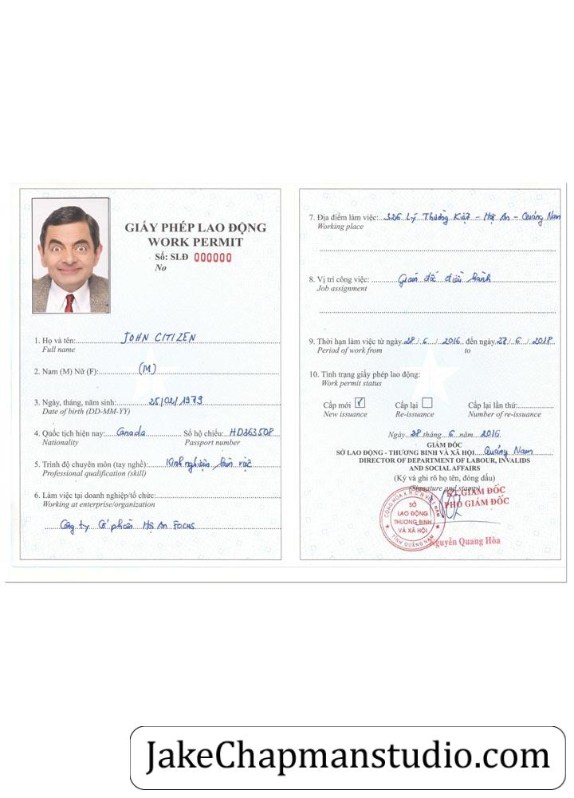 GIẤY PHÉP LAO ĐỘNG
WORK PERMIT
Số: SLĐ 000000
No
1. Họ và tên: JOHN CITIZEN
Full name
2. Nam (M) Nữ (F): (M)
3. Ngày, tháng, năm sinh: 25/02/1979
Date of birth (DD-MM-YY)
4. Quốc tịch hiện nay: Canada Số hộ chiếu: HD363508
Nationality Passport number
5. Trình độ chuyên môn (tay nghề): Kinh nghiệm làm việc
Professional qualification (skill)
6. Làm việc tại doanh nghiệp/tổ chức:
Working at enterprise/organization:
Công ty Cổ phần Hội An FOCUS
7. Địa điểm làm việc: 326 Lý Thường Kiệt - Hội An - Quảng Nam
Working place
8. Vị trí công việc: Giám đốc điều hành
Job assignment
9. Thời hạn làm việc từ ngày 28/6/2016 đến ngày 27/6/2018
Period of work from to
10. Tình trạng giấy phép lao động:
Work permit status
Cấp mới ☑ Cấp lại ☐ Cấp lại lần thứ:
New issuance Re-issuance Number of re-issuance
Ngày 28 tháng 6 năm 2016
GIÁM ĐỐC
SỞ LAO ĐỘNG - THƯƠNG BINH VÀ XÃ HỘI Quảng Nam
DIRECTOR OF DEPARTMENT OF LABOUR, INVALIDS
AND SOCIAL AFFAIRS
(Ký và ghi rõ họ tên, đóng dấu)
(Signature and stamp)
KT.GIÁM ĐỐC
PHÓ GIÁM ĐỐC
SỞ
LAO ĐỘNG
THƯƠNG BINH
VÀ XÃ HỘI
TỈNH QUẢNG NAM
Nguyễn Quang Hòa
JakeChapmanstudio.com